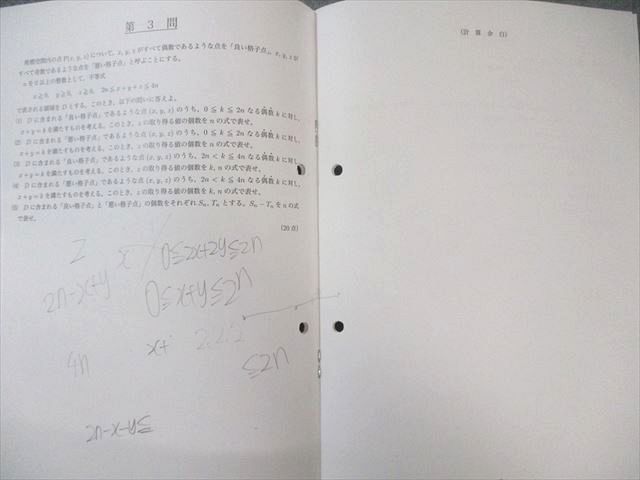 第 3 問
座標空間内の点 P(x, y, z) について, x, y, z がすべて偶数であるような点を「良い格子点」, x, y, z が
すべて奇数であるような点を「悪い格子点」と呼ぶことにする.
n を 2 以上の整数として, 不等式
x ≧ 0, y ≧ 0, z ≧ 0, 2n ≦ x + y + z ≦ 4n
で表される領域を D とする. このとき, 以下の問いに答えよ.
(1) D に含まれる「良い格子点」であるような点 (x, y, z) のうち, 0 ≦ k ≦ 2n なる偶数 k に対し,
x + y = k を満たすものを考える. このとき, z の取り得る値の個数を n の式で表せ.
(2) D に含まれる「悪い格子点」であるような点 (x, y, z) のうち, 0 ≦ k ≦ 2n なる偶数 k に対し,
x + y = k を満たすものを考える. このとき, z の取り得る値の個数を n の式で表せ.
(3) D に含まれる「良い格子点」であるような点 (x, y, z) のうち, 2n < k ≦ 4n なる偶数 k に対し,
x + y = k を満たすものを考える. このとき, z の取り得る値の個数を k, n の式で表せ.
(4) D に含まれる「悪い格子点」であるような点 (x, y, z) のうち, 2n < k ≦ 4n なる偶数 k に対し,
x + y = k を満たすものを考える. このとき, z の取り得る値の個数を k, n の式で表せ.
(5) D に含まれる「良い格子点」と「悪い格子点」の個数をそれぞれ Sn, Tn とする. Sn − Tn を n の式
で表せ.
(20 点)
Z
x
0≦2x+2y≦2n
2n-x+y
0≦x+y≦2n
4n
x+
2.2.2
≦2n
(計 算 余 白)